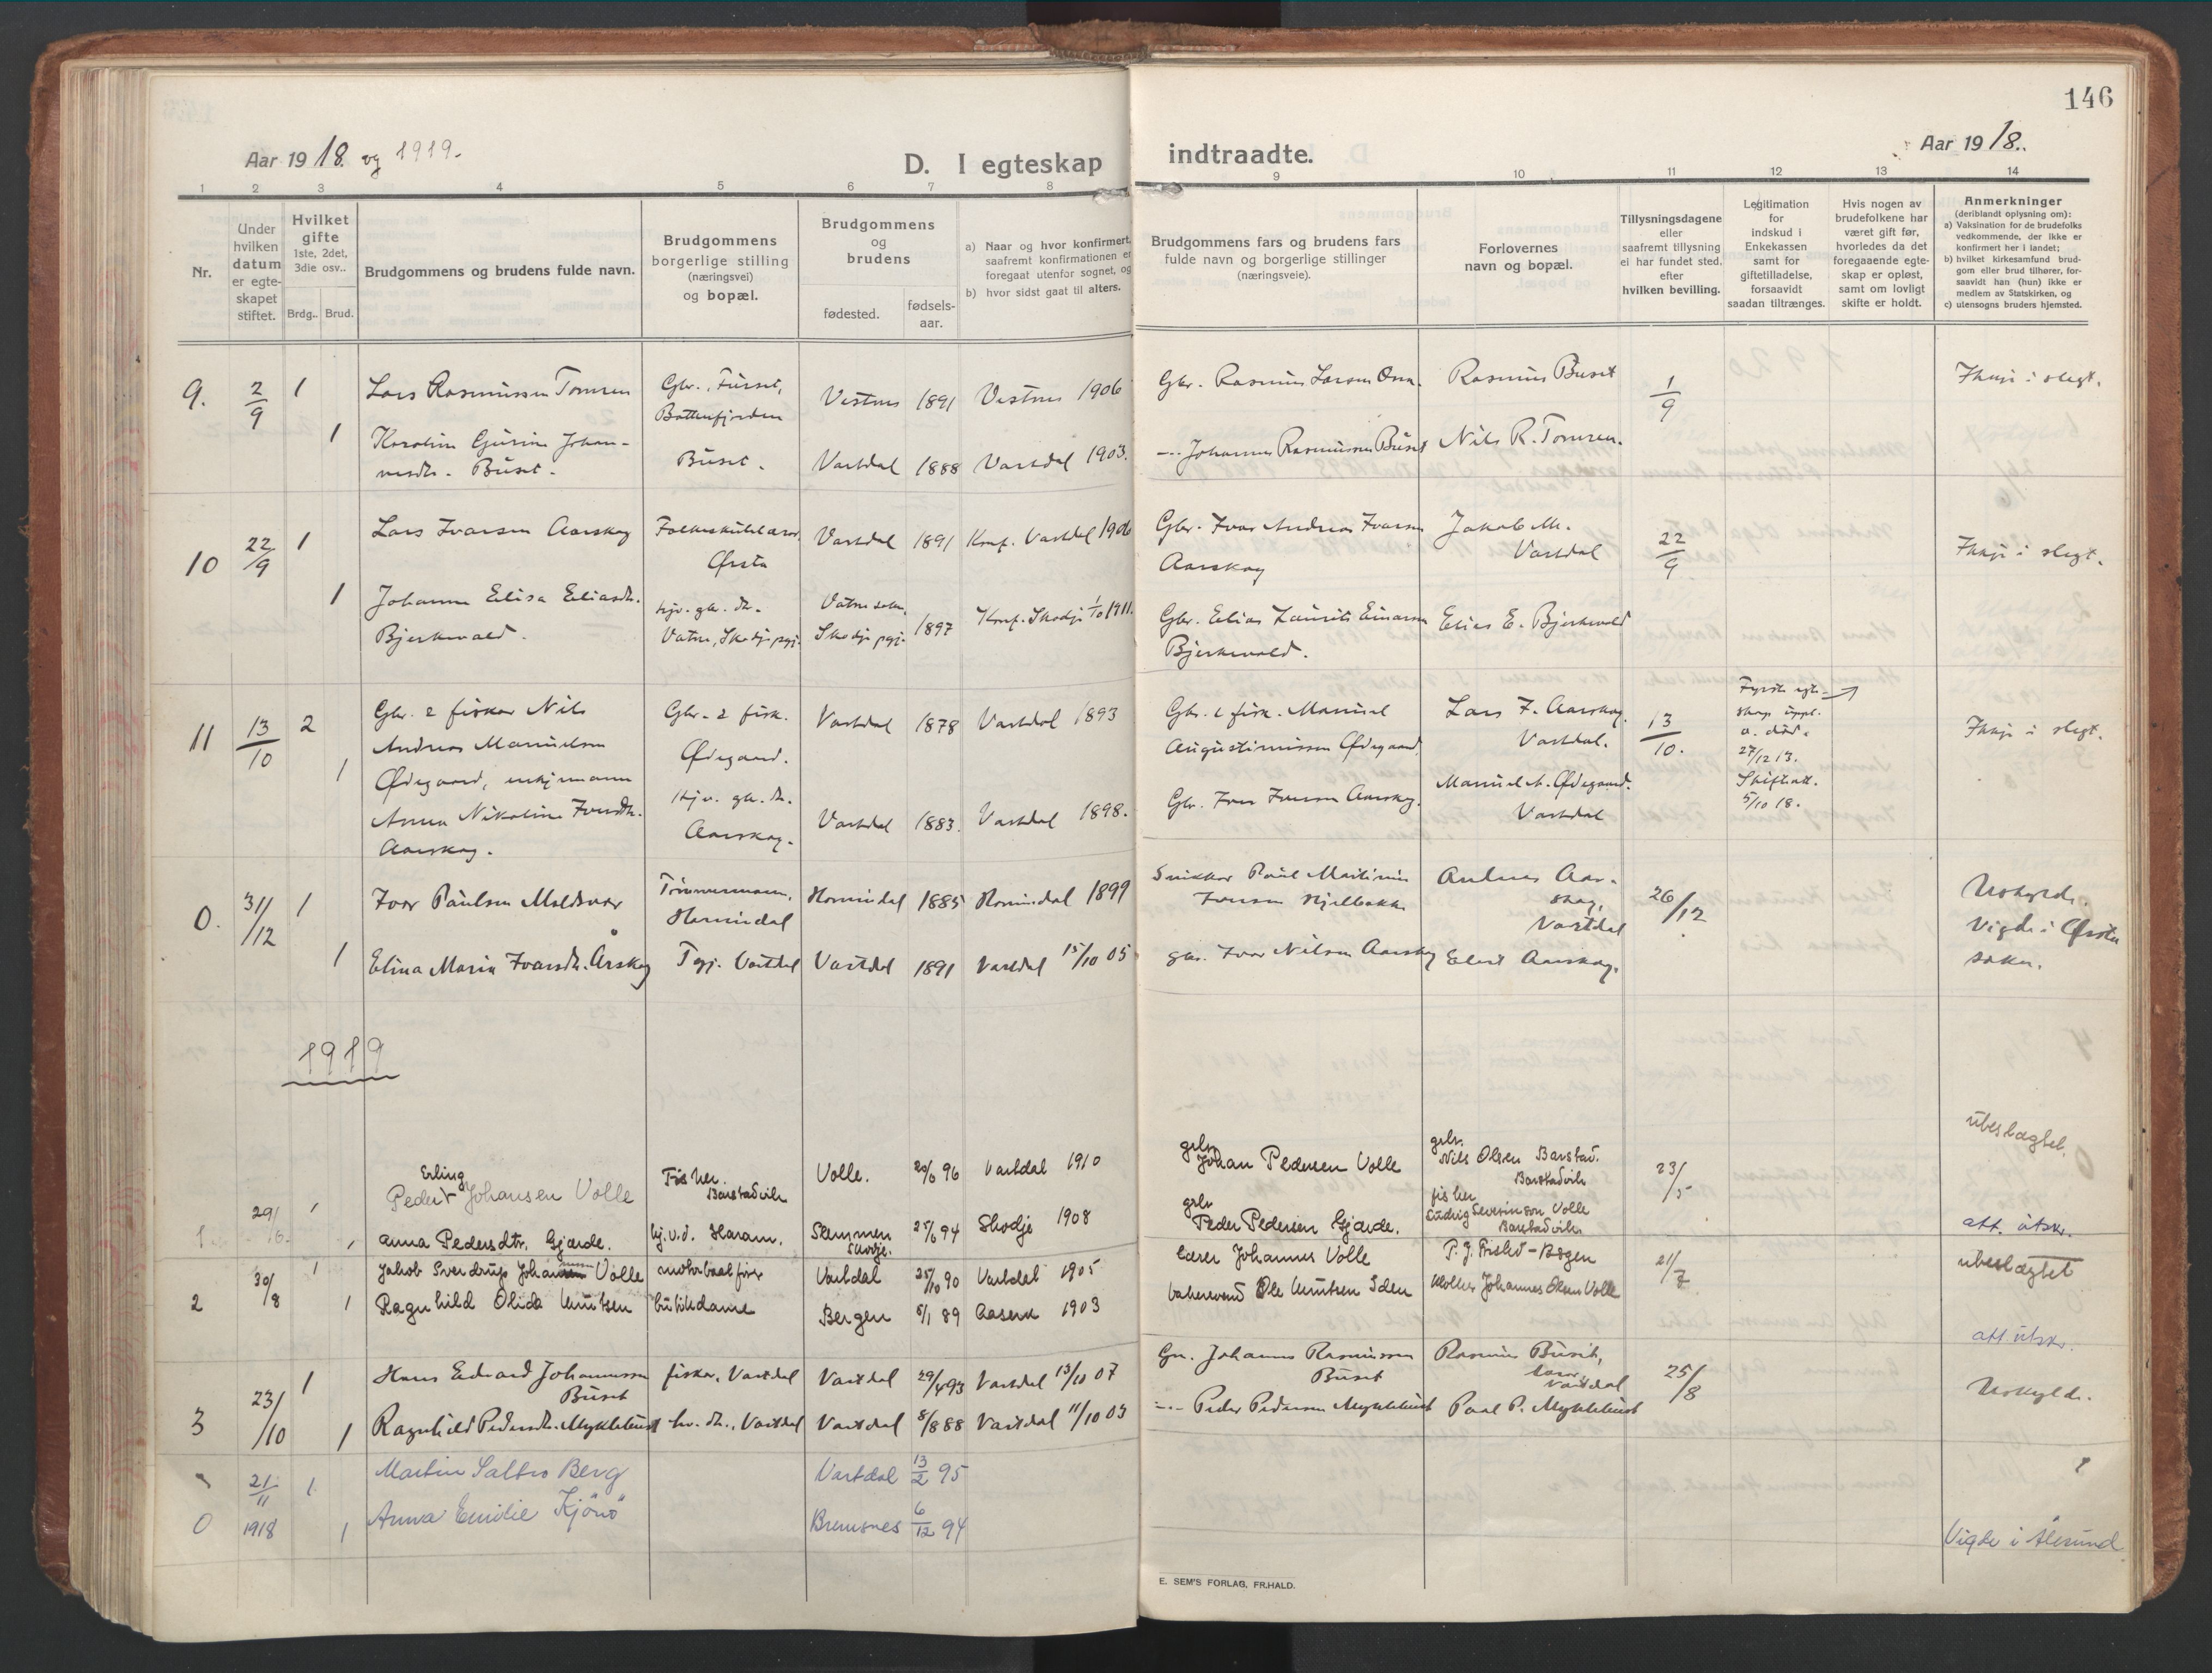 146
Aar 1918 og 1919.
D. I egteskap indtraadte.
Aar 1918.
1 2 3 4 5 6 7 8 9 10 11 12 13 14
Nr.
Under hvilken datum er egteskapet stiftet.
Hvilket gifte
1ste, 2det, 3die osv..
Brdg.. Brud.
Brudgommens og brudens fulde navn.
Brudgommens borgerlige stilling (næringsvei) og bopæl.
Brudgommens og brudens
fødested.
fødsels-aar.
a) Naar og hvor konfirmert, saafremt konfirmationen er foregaat utenfor sognet, og
b) hvor sidst gaat til alters.
Brudgommens fars og brudens fars fulde navn og borgerlige stillinger (næringsveie).
Forlovernes navn og bopæl.
Tillysningsdagene eller saafremt tillysning ei har fundet sted, efter hvilken bevilling.
Legitimation for indskud i Enkekassen samt for giftetilladelse, forsaavidt saadan tiltrænges.
Hvis nogen av brudefolkene har været gift før, hvorledes da det foregaaende egteskap er opløst, samt om lovligt skifte er holdt.
Anmerkninger
(deriblandt oplysning om):
a) Vaksination for de brudefolks vedkommende, der ikke er konfirmert her i landet;
b) hvilket kirkesamfund brudgom eller brud tilhører, forsaavidt han (hun) ikke er medlem av Statskirken, og
c) utensogns bruders hjemsted.
9. 2/9 1 Lars Rasmussen Tomren Gbr., Furset, Battenfjorden Vestnes 1891 Vestnes 1906 Gbr. Rasmus Larsen Rasmus Buset 1/9 Ikkje i slegt.
1 Karoline Gurine Johannesdtr. Buset. Buset. Vartdal 1888 Vartdal 1903. -"- Johannes Rasmussen Buset Nils R. Tomren.
10 22/9 1 Lars Ivarsen Aarskog Folkeskulelærar, Ørsta Vartdal 1891 Konf. Vartdal 1906 Gbr. Ivar Andreas Ivarsen Aarskog Jakob M. Vartdal 22/9 Ikkje i slegt.
1 Johanne Elisa Eliasdtr. Bjerkevold. hjv. gb. dtr. Vatne, Skodje pgj. Vatne sokn, Skodje pgj. 1897 Konf. Skodje 1/10 1911. Gbr. Elias Laurits Einarsen Bjerkevold. Elias E. Bjerkevold
11 13/10 2 Gbr. & fiskar Nils Andreas Manuelsen Ødegaard, enkjemann Gbr. & fisk. Ødegaard. Vartdal 1878 Vartdal 1893 Gbr. & fisk. Manuel Augustinussen Ødegaard. Lars I. Aarskog. Vartdal. 13/10. Fyrste egteskap uppl. v. død. 27/12 13. Skifteatt. 5/10 18. Ikkje i slegt.
1 Anna Nikoline Ivarsdtr. Aarskog. Hjv. gb. dtr. Aarskog. Vartdal 1883. Vartdal 1898. Gbr. Ivar Ivarsen Aarskog. Manuel A. Ødegaard. Vartdal
0. 31/12 1 Ivar Paulsen Moldsvor Tømmermann, Hornindal Hornindal 1885 Hornindal 1899 Snikkar Paul Martinus Iversen Kjelbakke Andreas Aarskog, Vartdal 26/12 Uskylde. Vigde i Ørsta sokn.
1 Elina Maria Ivarsdtr. Årskog Tgj. Vartdal Vartdal 1891 Vartdal 15/10 05 gbr. Ivar Nilsen Aarskog Elert Aarskog.
1919
1 29/6. 1 Peder Erling Johansen Volle Fisker. Barstadvik Volle. 20/6 96 Vartdal 1910 grbr. Johan Pedersen Volle grbr. Nils Olsen Barstad. Barstadvik 23/5 ubeslægtet.
1 Anna Pedersdtr. Gjærde. hj.v.d. Haram. Slemmen Skodje. 25/6 94 Skodje 1908 grbr Peder Pedersen Gjærde. fisker Ludvig Severinson Volle Barstadvik att. utskr.
2 30/8 1 Jakob Sverdrup Johansen Volle motorbaatfører Vartdal 25/10 90 Vartdal 1905 Lærer Johannes Volle P. J. Frislid - Bergen 21/7 ubeslægtet
1 Ragnhild Olida Knutsen butikdame Bergen 5/1 89 Aasene 1903 Ole Knutsen Iden Klokker Johannes Olsen Volle
att. utskr.
3 23/10 1 Hans Edvard Johannessen Buset fiskar, Vartdal Vartdal 29/4 93 Vartdal 13/10 07 Gr. Johannes Rasmussen Buset Rasmus Buset, Vartdal 25/8 Uskylde.
1 Ragnhild Pedersdtr. Myklebust hv. dtr., Vartdal Vartdal 8/8 88 Vartdal 11/10 03 -"- Peder Pedersen Myklebust Paal P. Myklebust
0 21/11 1918 1 Martin Saltro Berg Vartdal 13/2 95
1 Anna Emilie Kjönö Bremsnes 6/12 94 Vigde i Ålesund
E. SEM'S FORLAG, FR.HALD.